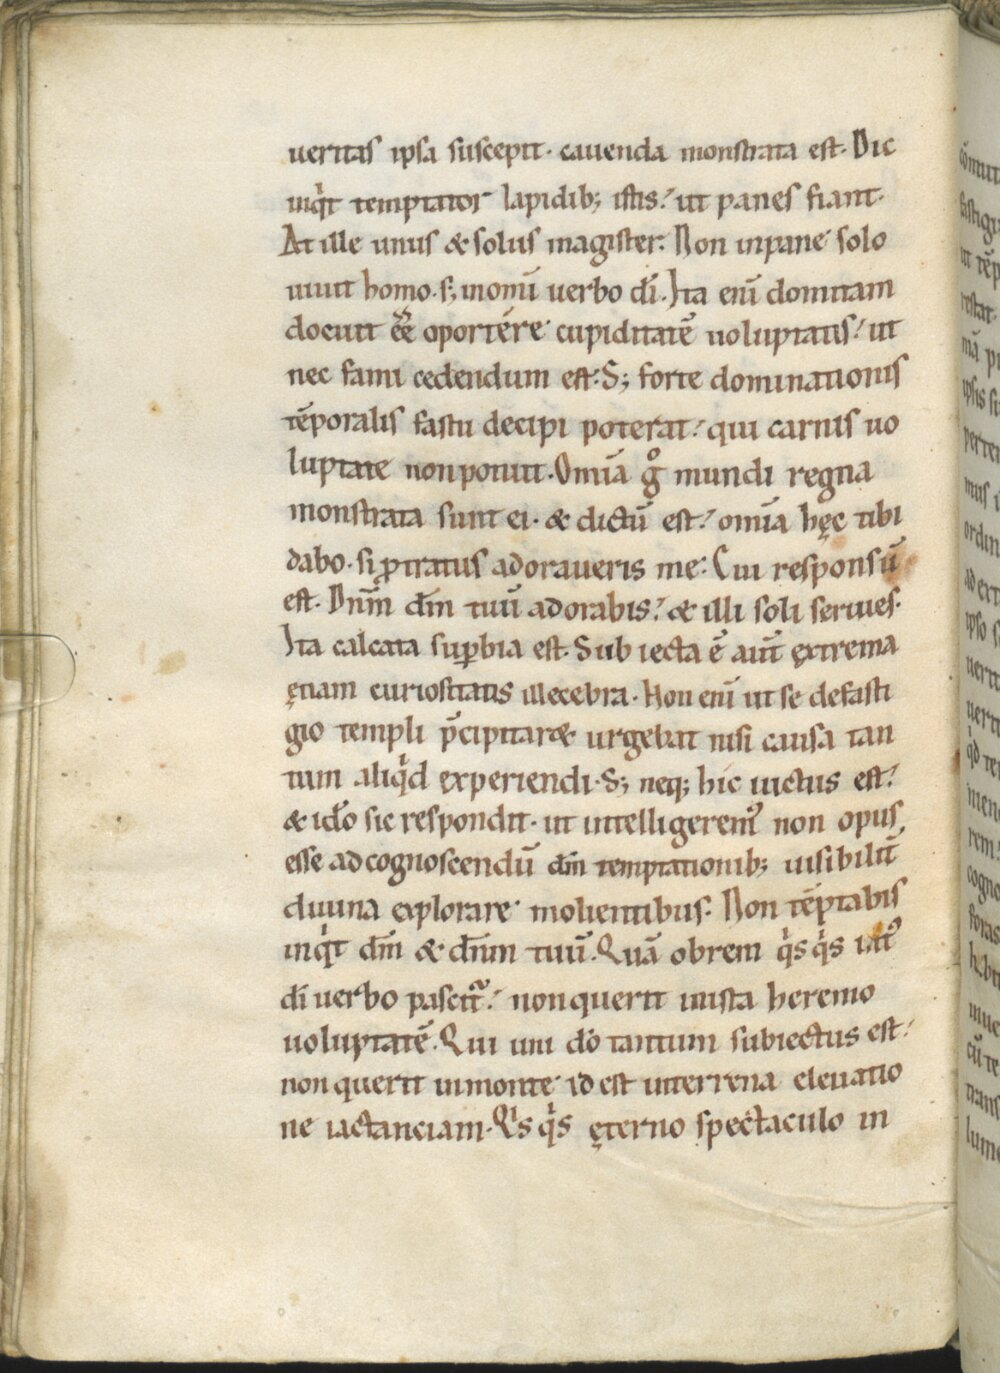 ueritas ipsa suscepit· cauenda monstrata est· Dic
inqͥt temptator lapidib; istis:́ ut panes fiant·
At ille unus & solus magister: Non inpane solo
uiuit homo· s; inomī uerbo dī· Ita enī domitam
docuit eē̄ oportére cupiditatē uoluptatis:́ ut
nec fami cedendum est· S; forte dominationis
tēporalis fastu decipi poterat:́ qui carnis uo
luptate nonpotuit· Omīa gͦ mundi regna
monstrata sunt ei· & dictū est:́ omīa hęc tibi
dabo· si ꝓtratus adoraueris me: Cui responsū
est· Dn̄m dm̄ tuū adorabis:́ & illi soli seruies·
Ita calcata suꝑbia est· Sub iecta ē aut̄ ęxtrema
ętiam curiositatis illecebra· Non enī ut se defasti
gio templi p̄cipitar& urgebat nisi causa tan
tum aliqͥd experiendi· S; neq; hic uictus est:́
& id̄o sic respondit· ut intelligerem᾿ non opus
esse adcognoscendū dm̄ temptationib; uisibilit̄
diuina explorare molientibus· Non tēptabis
inqͥt dm̄ & dn̄m tuū· Quā obrem qͥs qͥs int᾿
di uerbo pascitͬ:́ nonquerit inista heremo
uoluptatē· Qui uni dō tantum subiectus est:́
non querit inmonte id est interrena eleuatio
ne iactanciam· Qͥs qͥs ęterno spectaculo in